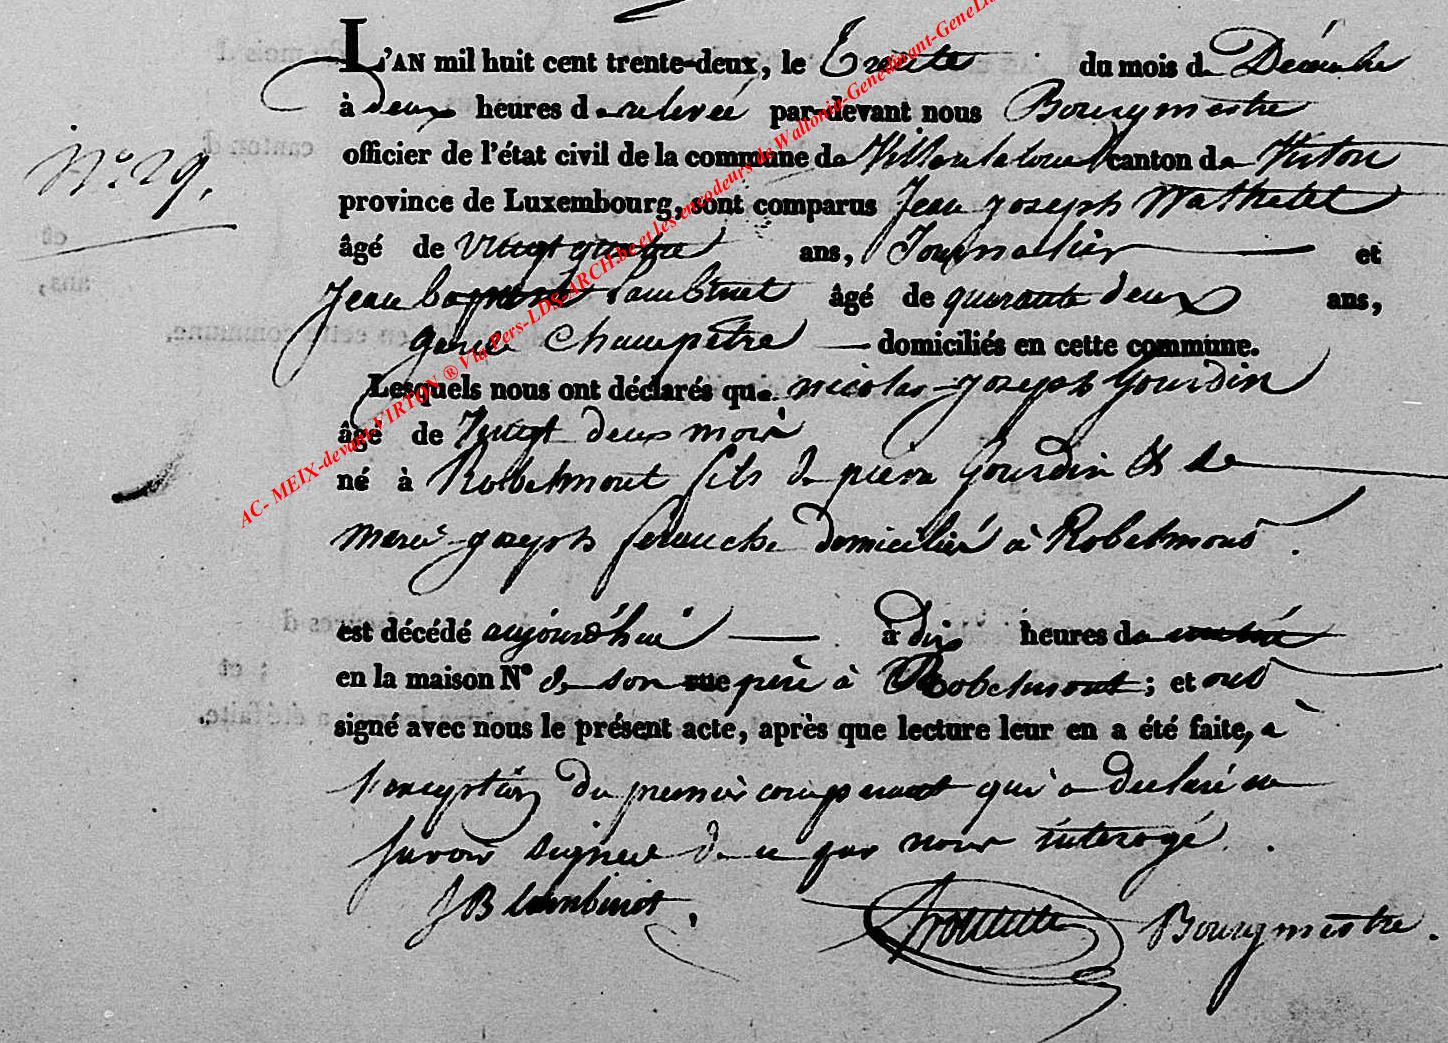 L'AN mil huit cent trente-deux, le Trente du mois de Décembre
à deux heures de relevée par-devant nous Bourgmestre
N° 29.
officier de l'état civil de la commune de Villers la loue canton de Virton
province de Luxembourg, sont comparus Jean joseph Wathelet
âgé de vingt quatre ans, Journalier et
Jean baptiste Lambinet âgé de quarante deux ans,
garde Champetre domiciliés en cette commune.
Lesquels nous ont déclarés que nicolas-joseph Gourdin
âgé de vingt deux mois
né à Robelmont fils de pierre Gourdin & de
marie-joseph domicilié à Robelmont.
est décédé aujourd'hui à dix heures du
en la maison N° de son rue père à Robelmont; et ont
signé avec nous le présent acte, après que lecture leur en a été faite, à
l'exception du premier comparant qui a declaré ne
savoir signer de ce par nous interogé.
JB Lambinet. Bourgmestre.
AC- MEIX-devant-VIRTON ® Via Pers-LDS-ARCH.be et les encodeurs de Wallonia-Genedinant-GeneLux